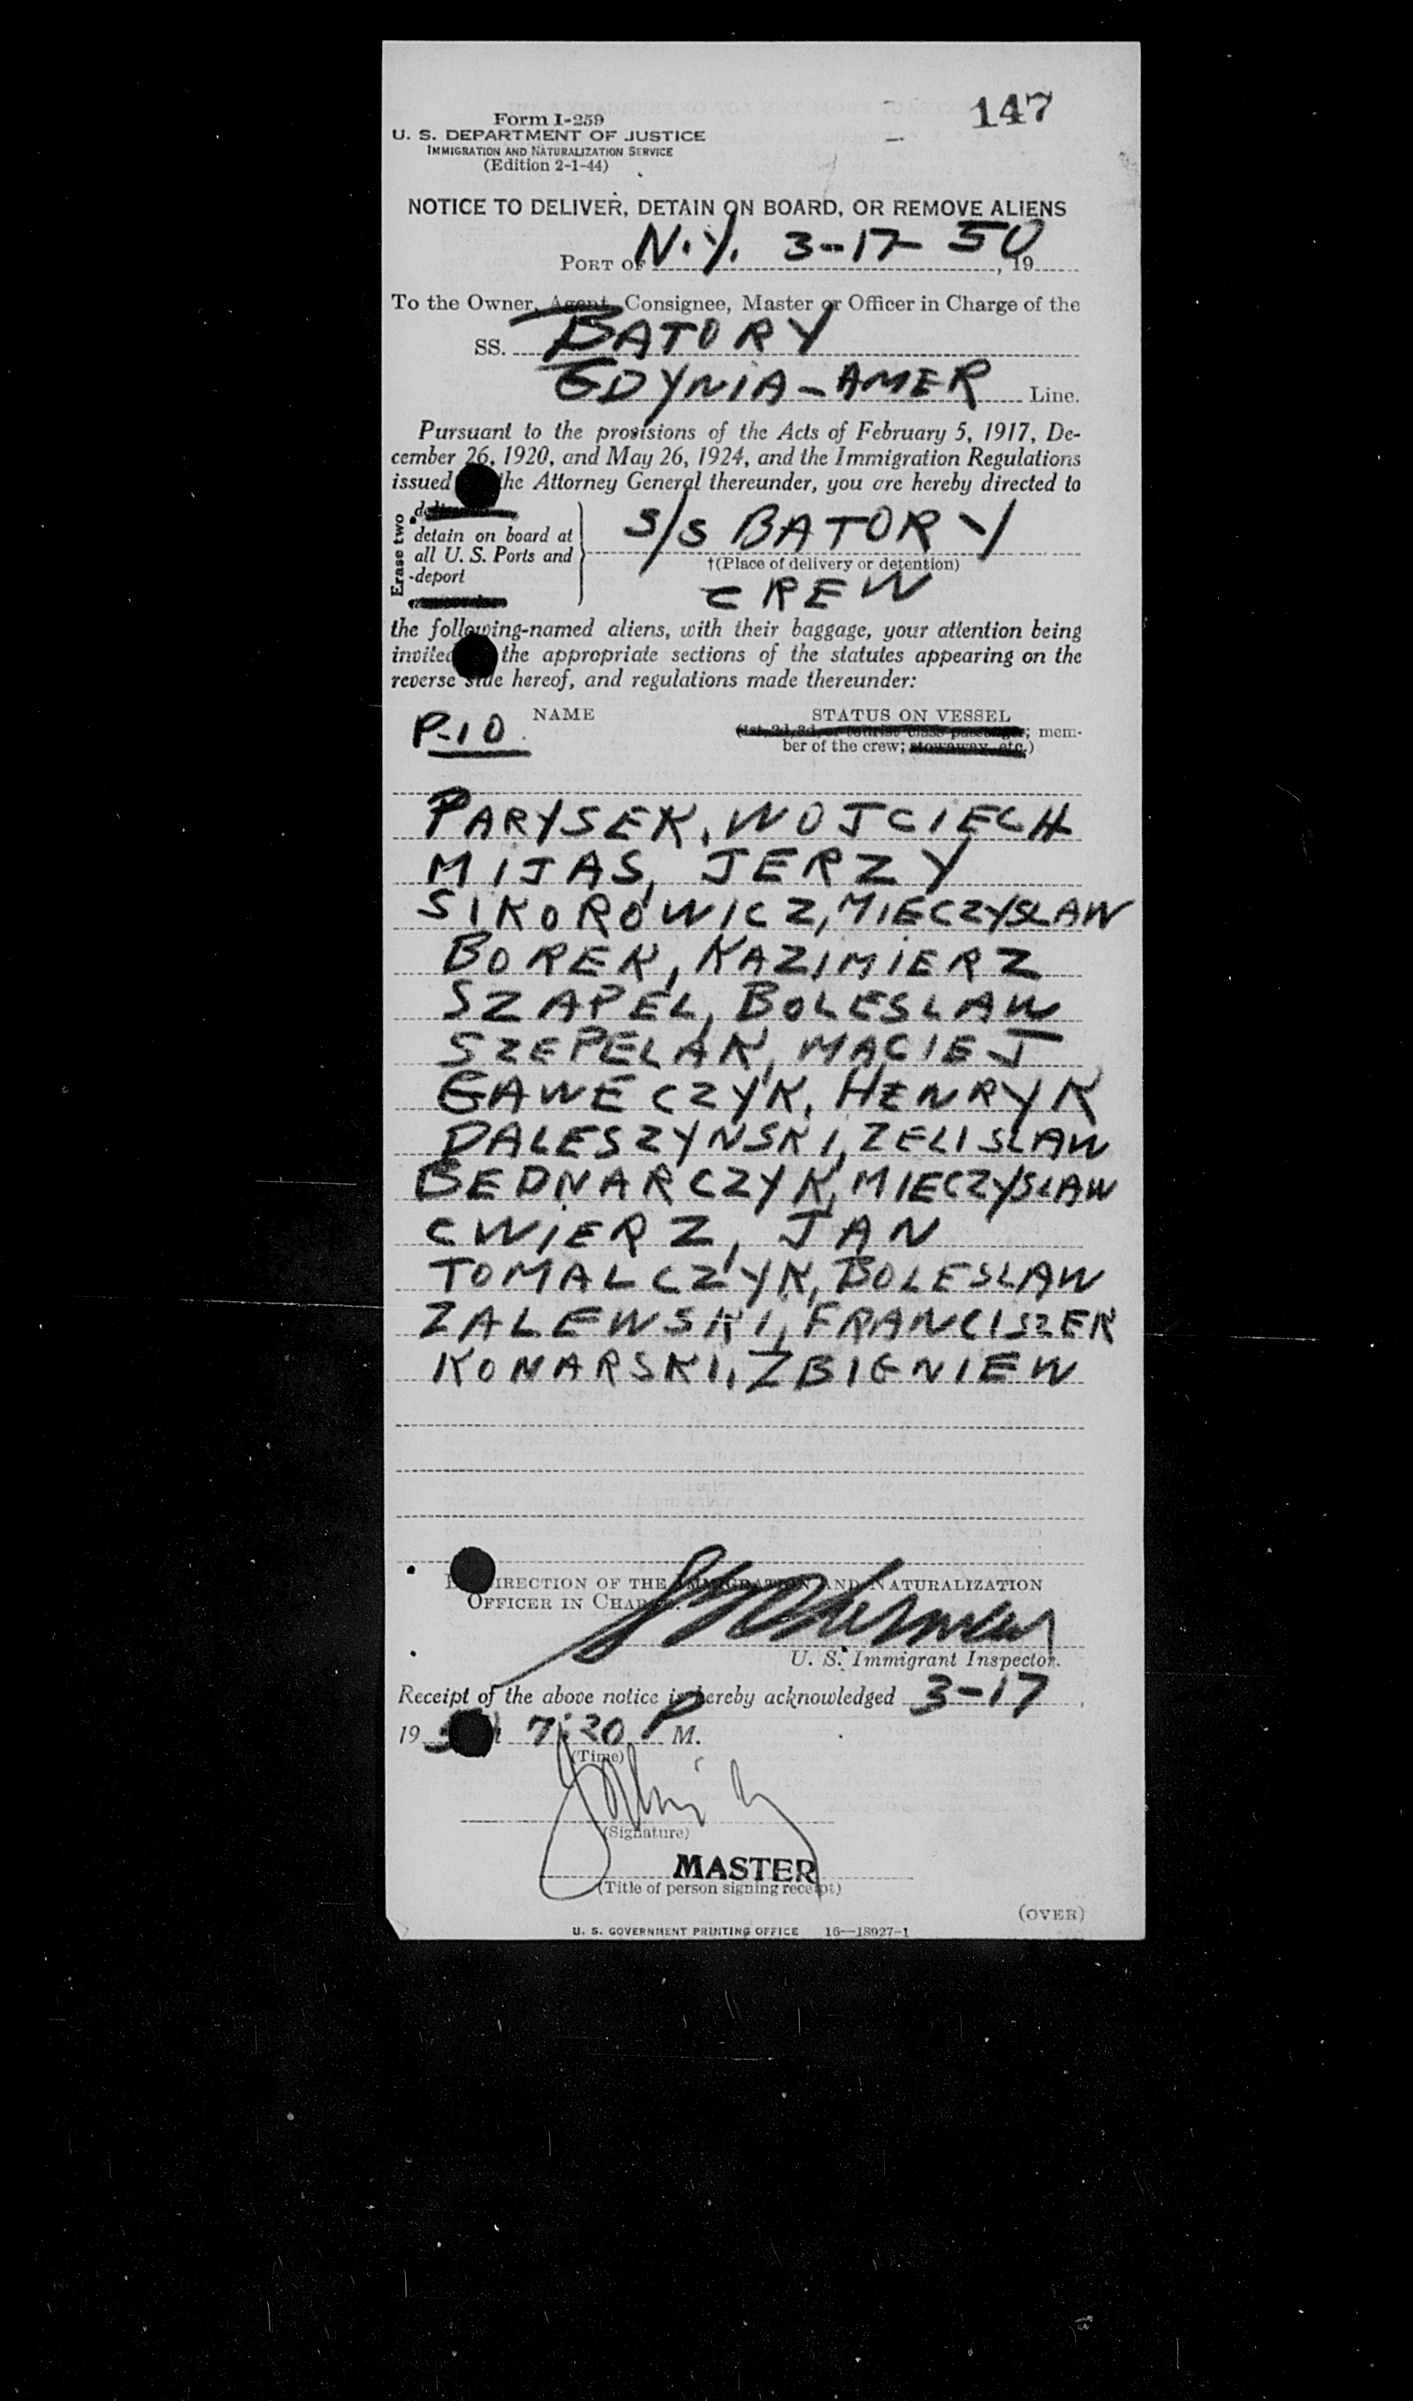 147
Form I-259
U. S. DEPARTMENT OF JUSTICE
IMMIGRATION AND NATURALIZATION SERVICE
(Edition 2-1-44)
NOTICE TO DELIVER, DETAIN ON BOARD, OR REMOVE ALIENS
PORT OF N.Y. 3-17- 50, 19
To the Owner, Agent, Consignee, Master or Officer in Charge of the
SS. BATORY
GDYNIA-AMER Line.
Pursuant to the provisions of the Acts of February 5, 1917, De-
cember 26, 1920, and May 26, 1924, and the Immigration Regulations
issued the Attorney General thereunder, you are hereby directed to
Erase two
detain on board at
all U. S. Ports and
-deport
S/S BATORY
†(Place of delivery or detention)
CREW
the following-named aliens, with their baggage, your attention being
invited the appropriate sections of the statutes appearing on the
reverse side hereof, and regulations made thereunder:
P-10 NAME STATUS ON VESSEL
(1st, 2d, 3d, or tourist class passenger; mem-
ber of the crew; stowaway, etc.)
PARYSEK, WOJCIECH
MIJAS, JERZY
SIKOROWICZ, MIECZYSLAW
BOREK, KAZIMIERZ
SZAPEL, BOLESLAW
SZEPELAK, MACIEJ
GAWECZYK, HENRYK
DALESZYNSKI, ZELISLAW
BEDNARCZYK, MIECZYSLAW
CWIERZ, JAN
TOMALCZYK, BOLESLAW
ZALEWSKI, FRANCISZEK
KONARSKI, ZBIGNIEW
DIRECTION OF THE IMMIGRATION AND NATURALIZATION
OFFICER IN CHARGE.
U. S. Immigrant Inspector.
Receipt of the above notice is hereby acknowledged 3-17,
19 5 7:20 P M.
(Time)
(Signature)
MASTER
(Title of person signing receipt)
(OVER)
U. S. GOVERNMENT PRINTING OFFICE 16—18927-1